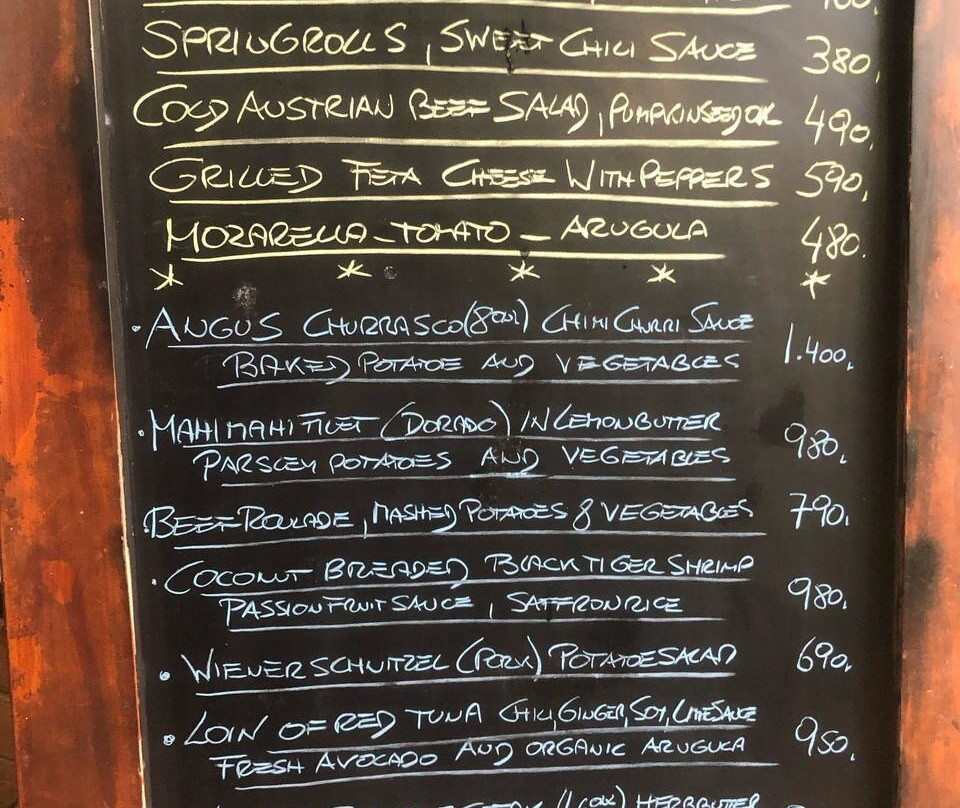 SPRINGROLLS, SWEET CHILI SAUCE 380,
COLD AUSTRIAN BEEF SALAD, PUMPKINSEEDOIL 490,
GRILLED FETA CHEESE WITH PEPPERS 590,
MOZARELLA - TOMATO - ARUGULA 480.
* * * * *
• ANGUS CHURRASCO (8oz) CHIMI CHURRI SAUCE
BAKED POTATOE AND VEGETABLES 1.400,
• MAHI MAHI FILET (DORADO) IN LEMONBUTTER
PARSLEY POTATOES AND VEGETABLES 980,
• BEEF ROULADE, MASHED POTATOES & VEGETABLES 790,
• COCONUT BREADED BLACK TIGER SHRIMP
PASSIONFRUIT SAUCE, SAFFRON RICE 980,
• WIENER SCHNITZEL (PORK) POTATOE SALAD 690,
• LOIN OF RED TUNA CHILI, GINGER, SOY, LIME SAUCE
FRESH AVOCADO AND ORGANIC ARUGULA 950,
HERBBUTTER